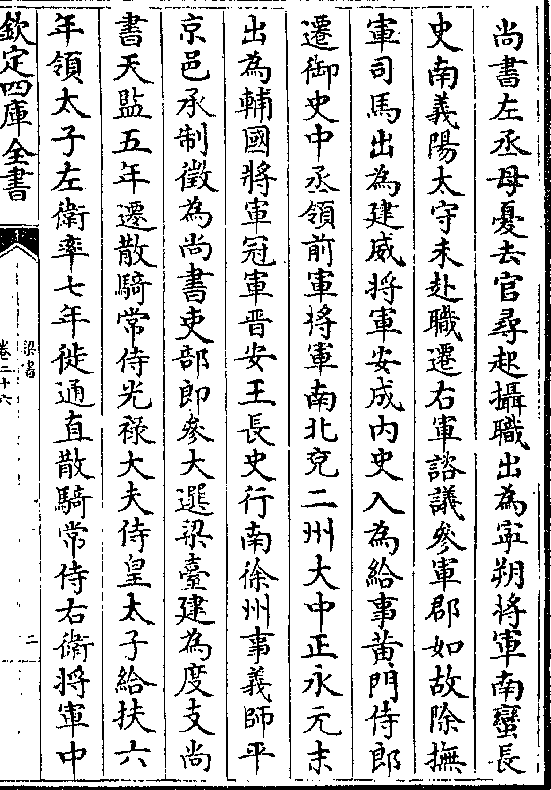 尚書左丞母憂去官尋起攝職出為寧朔將軍南蠻長
史南義陽太守未赴職遷右軍諮議參軍郡如故除撫
軍司馬出為建威將軍安成內史入為給事黃門侍郎
遷御史中丞領前軍將軍南北兗二州大中正永元末
出為輔國將軍冠軍晉安王長史行南徐州事義師平
京邑承制徵為尚書吏部郎參大選梁臺建為度支尚
書天監五年遷散騎常侍光祿大夫侍皇太子給扶六
年領太子左衛率七年徙通直散騎常侍右衛將軍中
欽定四庫全書
梁書
卷二十六
二